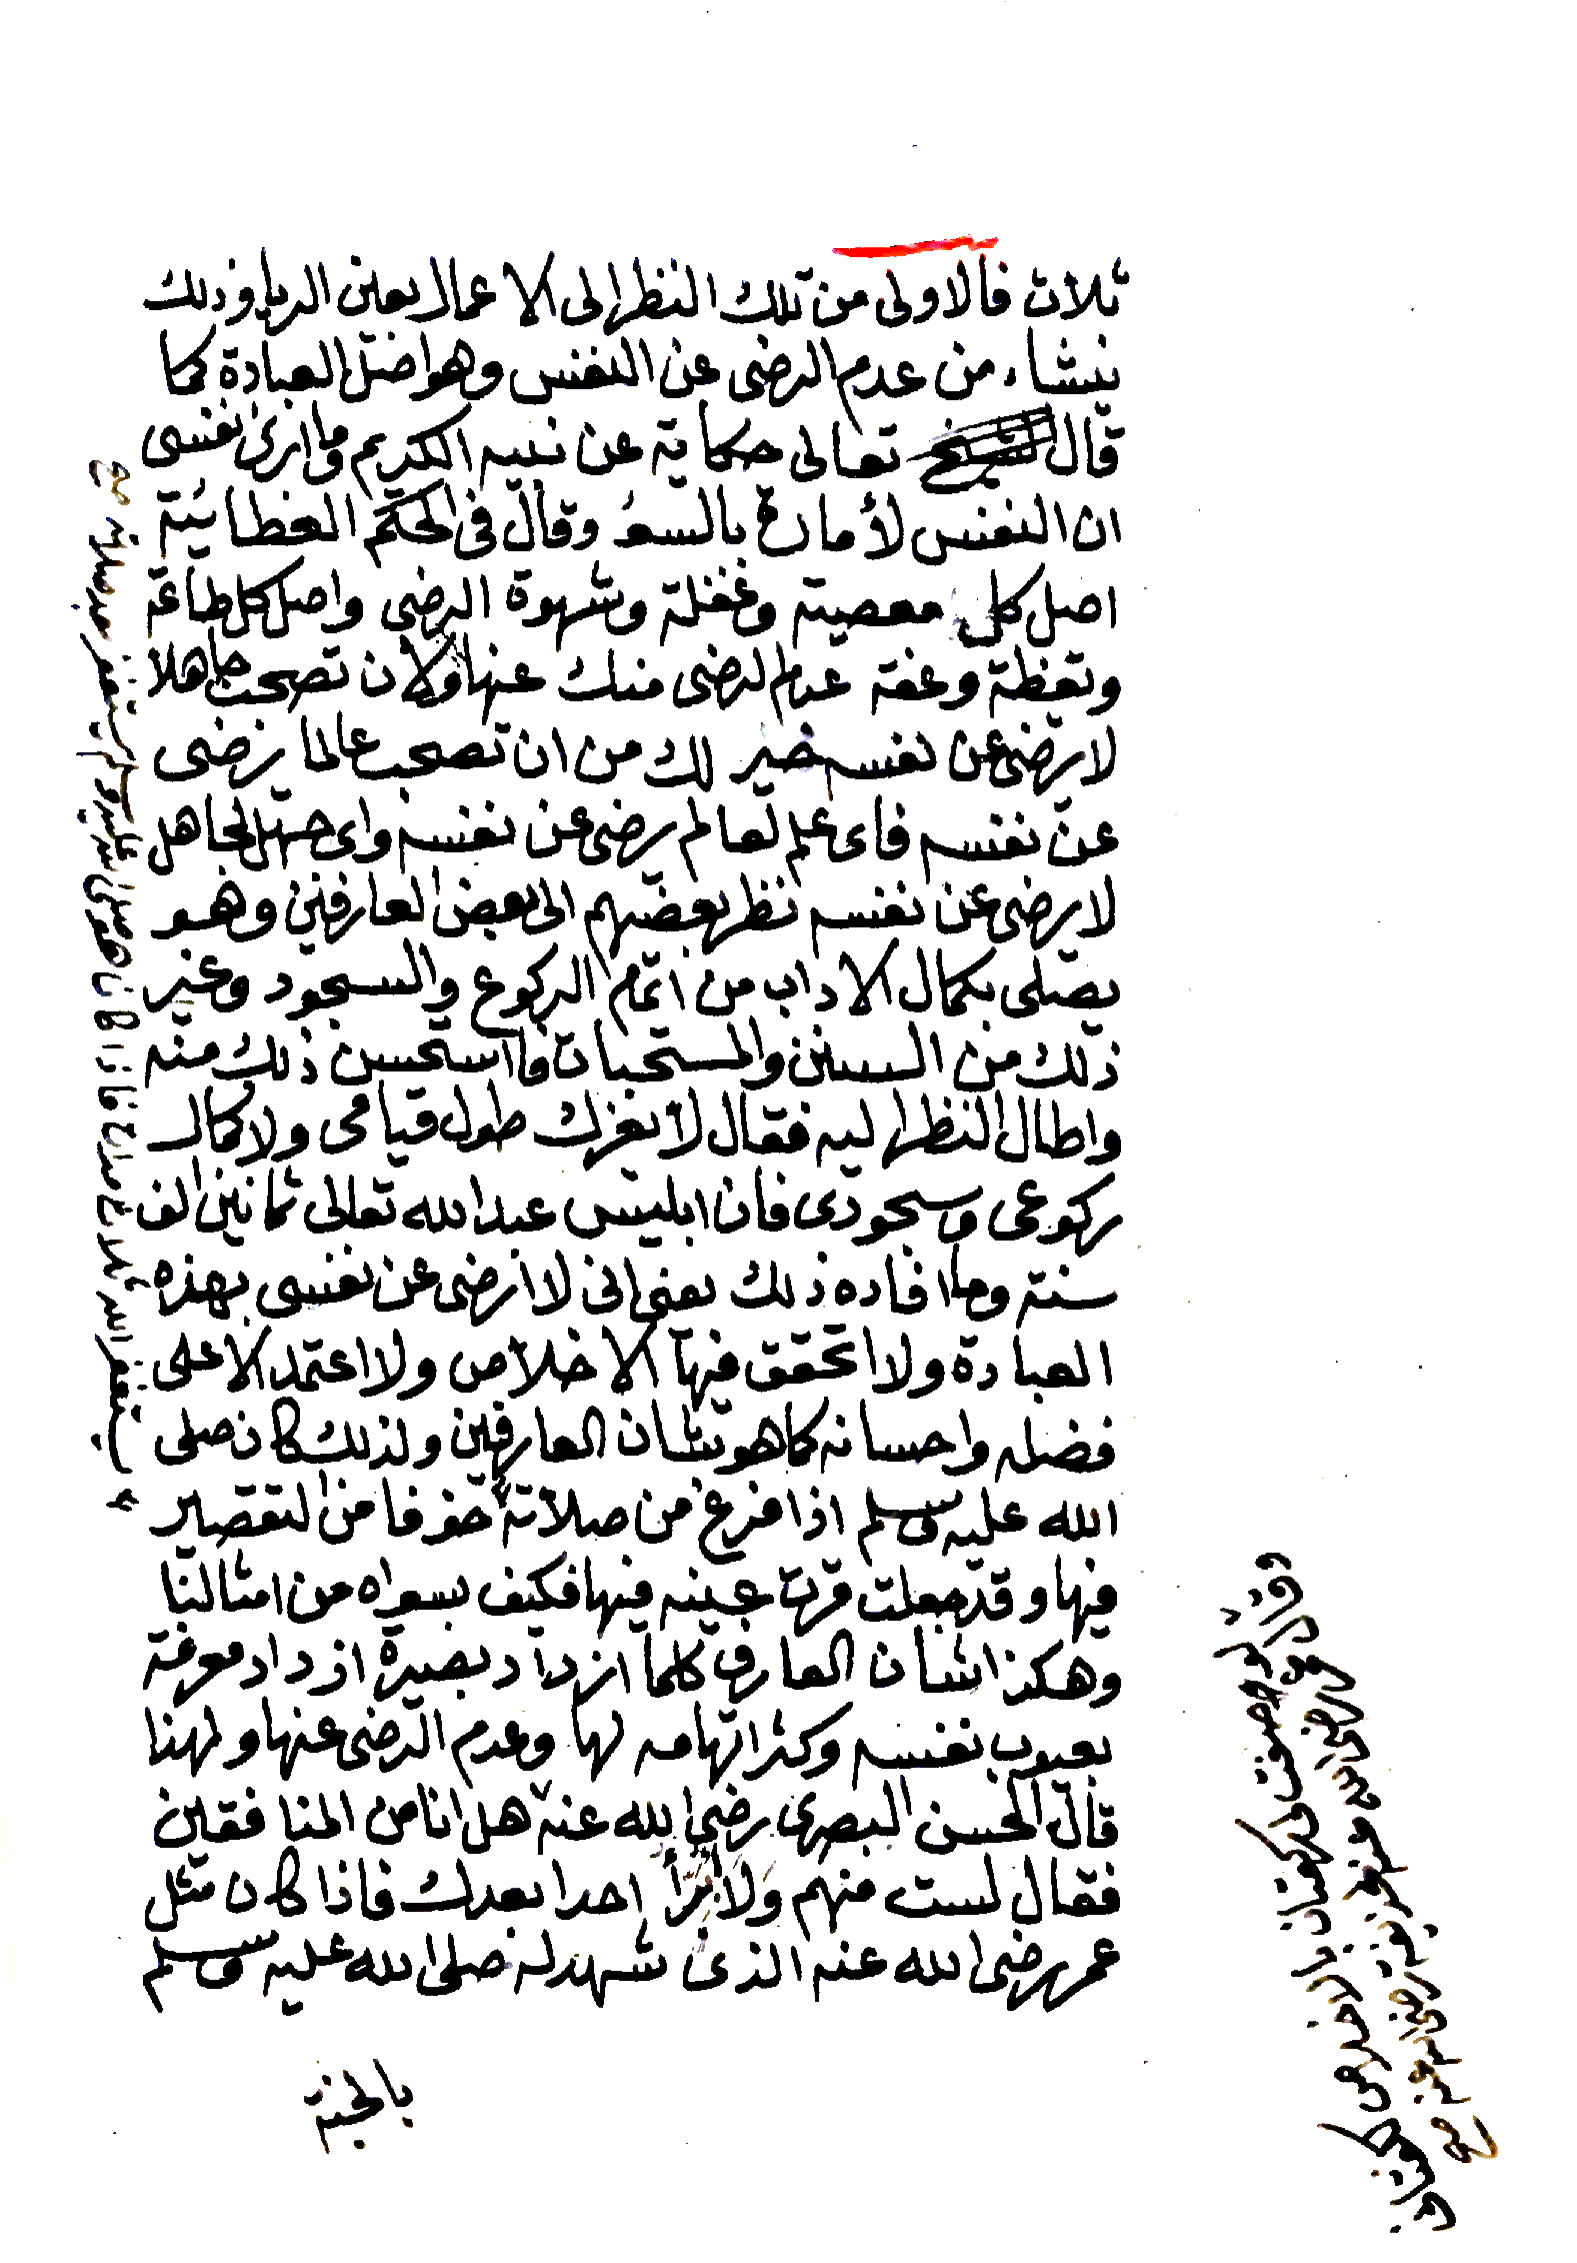 ثلاث فالاولى من تلك النظر الى الاعمال بعين الريا وذلك
ينشاء من عدم الرضى عن النفس وهو افضل العبادة كما
قال تعالى حكاية عن نبيه الكريم وما ابرئ نفسى
ان النفس لأمارة بالسوء وقال فى الحكم العطائية
اصل كل معصية وغفلة وشهوة الرضى واصل كل طاعة
ويقظة وعفة عدم الرضى منك عنها ولان تصحب جاهلا
لا يرضى عن نفسه خير لك من ان تصحب عالما يرضى
عن نفسه فاى علم لعالم يرضى عن نفسه واى جهل لجاهل
لا يرضى عن نفسه نظر بعضهم الى بعض العارفين وهو
يصلى بكمال الاداب من اتمام الركوع والسجود وغير
ذلك من السنن والمستحبات فاستحسن ذلك منه
واطال النظر اليه فقال لا يغرك طول قيامى ولا كمال
ركوعى وسجودى فان ابليس عبد الله تعالى ثمانين الف
سنة وما افاده ذلك يعنى انى لا ارضى عن نفسى بهذه
العبادة ولا اتحقق فيها الاخلاص ولا اعتمد الا على
فضله واحسانه كما هو شان العارفين ولذلك كان صلى
الله عليه وسلم اذا فرغ من صلاته خوفا من التقصير
فيها وقد جعلت قرة عينه فيها فكيف بسواه من امثالنا
وهكذا شان العارف كلما ازداد بصيرة ازداد معرفة
بعيوب نفسه وكثر اتهامه لها وعدم الرضى عنها ولهذا
قال الحسن البصرى رضى الله عنه هل انا من المنافقين
فقال لست منهم ولا ابرأ احدا بعدك فاذا كان مثل
عمر رضى الله عنه الذى شهد له صلى الله عليه وسلم
بالجنة
يستغفر الله ثلاث مرات
وقال
لو صفت لى ركعتان بالاخلاص لكفتانى
رضى الله عنه رضى الله عنه صح